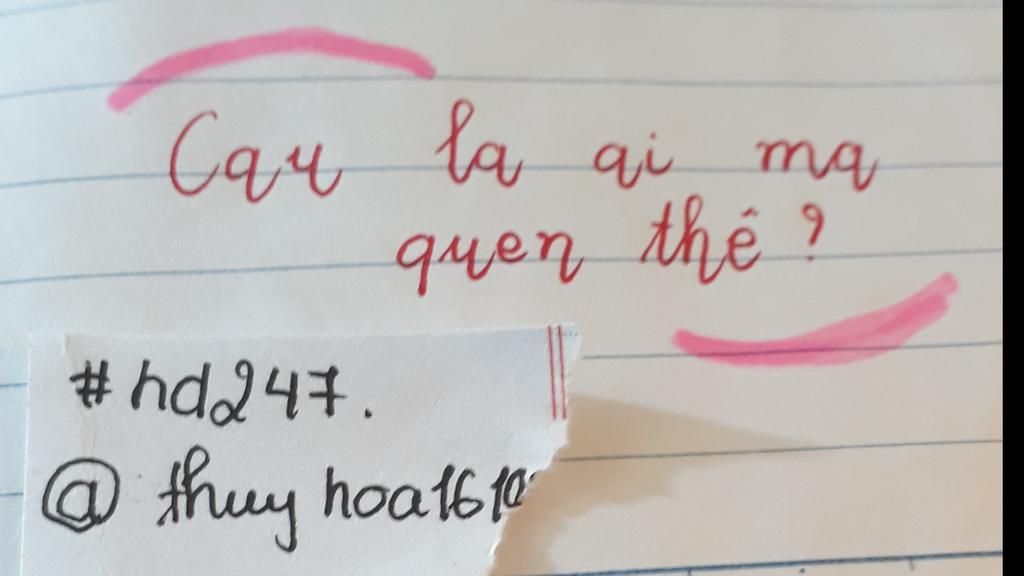 Cau la ai ma
quen thê?
#hd247.
@ thuy hoa1610